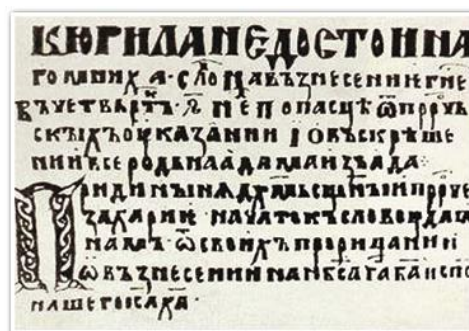 КЮРИЛА НЕДОСТОИНА
ГО МНИХА · СЛО НА ВЪЗНЕСЕНИЕ ГНЕ
ВЪ ЧЕТВЬРТ ПО ПАСЦѢ Ѿ ПРРЧЬ
СКЪІХЪ ОУКАЗАНИИ І О ВЪСКРѢШЕ
НИИ ВСЕРОДЬНААДАМА ИЗЪ АДА ·:·
ПРИДИ НЪІНѦ ДХМЬ СЩНЪІИ ПРРЧЕ
ЗАХАРИЕ НАЧАТОКЪ СЛОВОУ ДАІА
НАМЪ · Ѿ СВОИХЪ ПРОРИЦАНИИ
Ѡ ВЪЗНЕСЕНИИ НА НБСА ГА БА И СПС
НАШЕГО ИС ХА ·